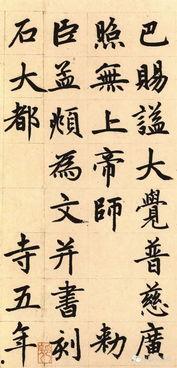 巴賜謚大覺普慈廣
照無上帝師　敕
臣孟頫為文并書刻
石大都　寺五年